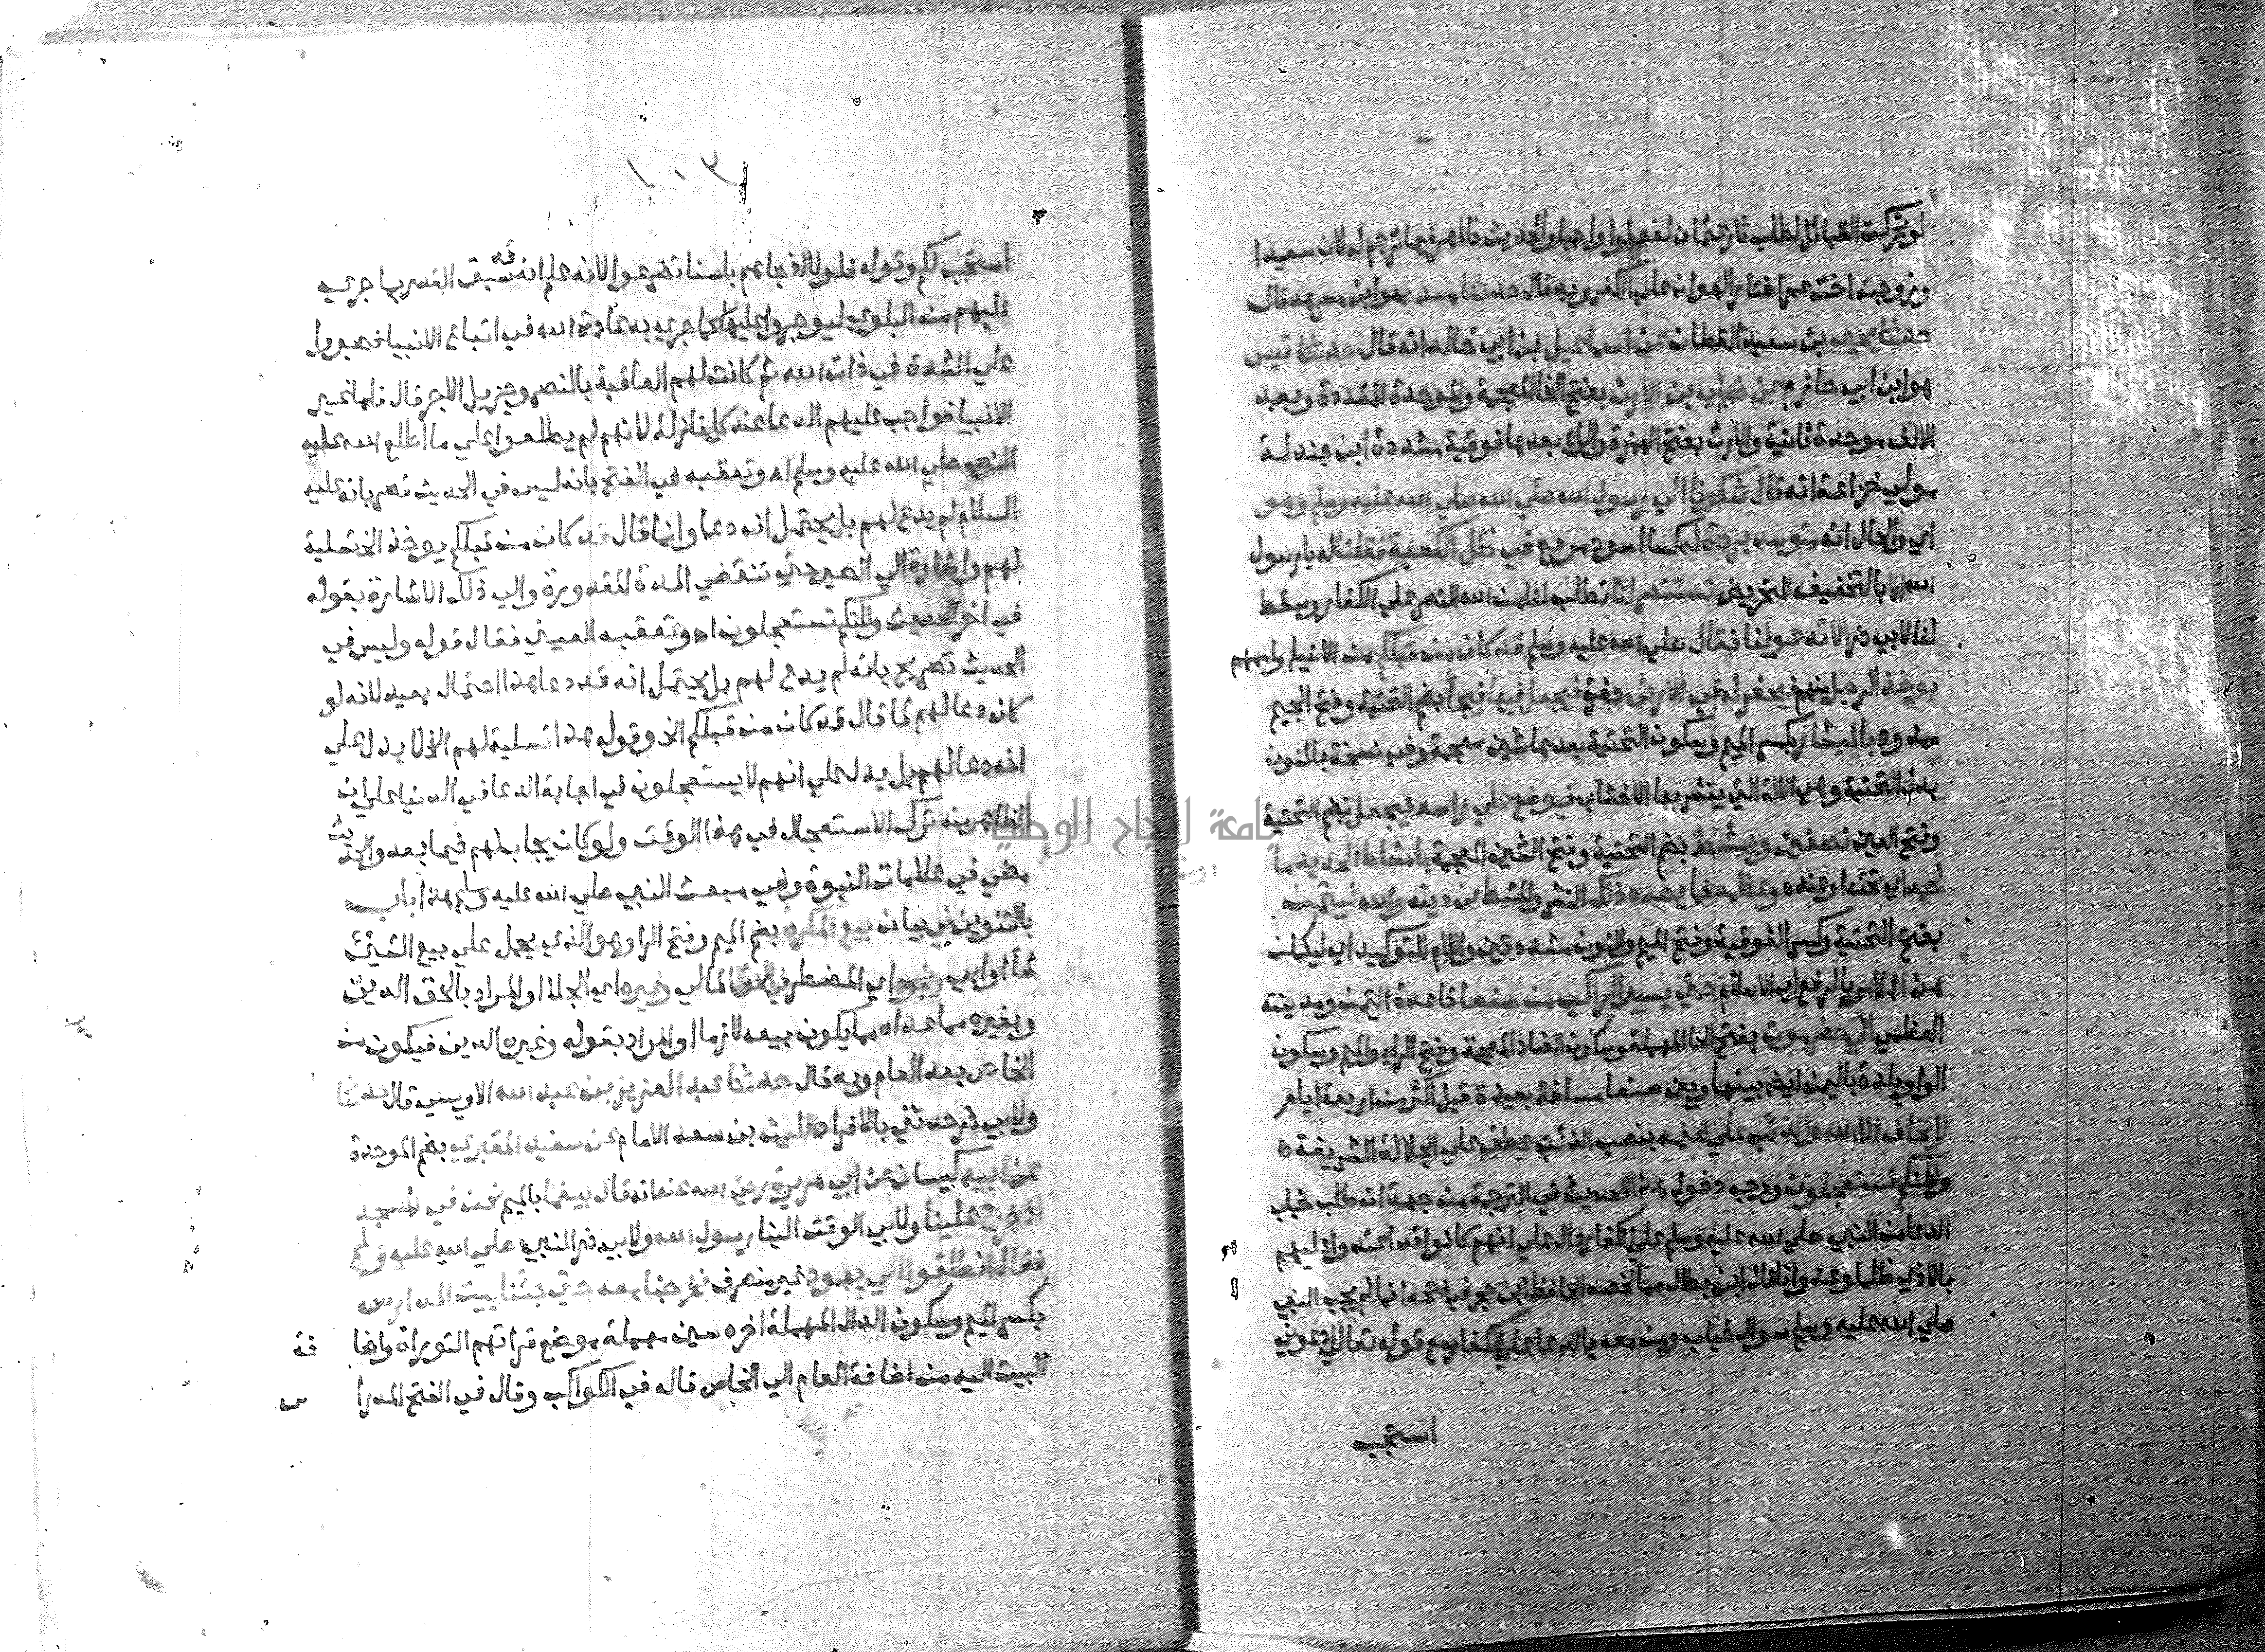 لو تحركت القبائل لطلب ثار عثمان لفعلوا واجبا والحديث ظاهر فيما ترجم له لان سعيدا
وزوجته اخت عمر اختار الهوان علي الكفر وبه قال حدثنا مسدد هو ابن مسرهد قال
حدثنا يحيي بن سعيد القطان عن اسماعيل بن ابي خالد انه قال حدثنا قيس
هو ابن ابي حازم عن خباب بن الارت بفتح الخا المعجمة والموحدة المشددة وبعد
الالف موحدة ثانية والارت بفتح الهمزة والرا بعدها فوقية مشددة ابن جندلة
مولي خزاعة انه قال شكونا الي رسول الله صلي الله صلي الله عليه وسلم وهو
اي والحال انه متوسد بردة له كسا اسود مربع في ظل الكعبة فقلنا له يا رسول
الله الا بالتخفيف التحريض تستنصر لنا تطلب لنا من الله النصر علي الكفار وسقط
لنا لابي ذر الا تدعو لنا فقال صلي الله عليه وسلم قد كان من قبلكم من الانبيا واممهم
يوخذ الرجل منهم فيحفر له في الارض حفرة فيجعل فيها فيجا بضم التحتية وفتح الجيم
ممدود بالميشار بكسر الميم وسكون التحتية بعدها شين معجمة وفي نسخة بالنون
بدل التحتية وهي الالة التي ينشر بها الاخشاب فيوضع علي راسه فيجعل بضم التحتية
وفتح العين نصفين ويمشط بضم التحتية وفتح الشين المعجمة بامشاط الحديد ما
دون
لحمه اي تحته او عنده وعظمه فما يصده ذلك النشر والمشط عن دينه والله ليتمن
بفتح التحتية وكسر الفوقية وفتح الميم والنون مشددتين واللام للتوكيد اي ليكملن
هذا الامر بالرفع اي الاسلام حتي يسير الراكب من صنعا قاعدة اليمن ومدينته
العظمي الي حضرموت بفتح الحا المهملة وسكون الضاد المعجمة وفتح الرا والميم وسكون
الواو بلدة باليمن ايضا بينها وبين صنعا مسافة بعيدة قيل اكثر من اربعة ايام
لا يخاف الا الله والذئب علي غنمه بنصب الذئب عطف علي الجلالة الشريفة
ولكنكم تستعجلون ووجه دخول هذا الحديث في الترجمة من جهة ان طلب خباب
الدعا من النبي صلي الله عليه وسلم علي الكفار دال علي انهم كانوا قد اعتدوا عليهم
بالاذي ظلما وعدوانا قال ابن بطال مما لخصه الحافظ ابن حجر في فتحه انما لم يجب النبي
صلي الله عليه وسلم سوال خباب ومن معه بالدعا علي الكفار مع قوله تعالي ادعوني
استجب
١٠٣
استجب لكم وقوله فلولا اذ جاءهم باسنا تضرعوا لانه علم انه قد سبق القدر بما جري
عليهم من البلوي ليوجروا عليها كما جري به عادة الله في اتباع الانبيا فصبروا
علي الشدة في ذات الله ثم كانت لهم العاقبة بالنصر وجزيل الاجر قال فاما غير
الانبيا فواجب عليهم الدعا عند كل نازلة لانهم لم يطلعوا علي ما اطلع الله عليه
النبي صلي الله عليه وسلم اه وتعقبه في الفتح بانه ليس في الحديث تصريح بانه عليه
السلام لم يدع لهم بل يحتمل انه دعا وانما قال قد كان من قبلكم يوخذ الخ تسلية
لهم واشارة الي الصبر حتي تنقضي المدة المقدورة والي ذلك الاشارة بقوله
في اخر الحديث ولكنكم تستعجلون اه وتعقبه العيني فقال قوله وليس في
الحديث تصريح بانه لم يدع لهم بل يحتمل انه قد دعا هذا احتمال بعيد لانه لو
كان دعا لهم لما قال قد كان من قبلكم الخ وقوله هذا تسلية لهم الخ لا يدل علي
انه دعا لهم بل يدل علي انهم لا يستعجلون في اجابة الدعا في الدنيا علي ان
الظاهر منه ترك الاستعجال في هذا الوقت ولو كان يجاب لهم فيما بعد والحديث
مضي في علامات النبوة وفي مبعث النبي صلي الله عليه وسلم هذا باب
بالتنوين في بيان بيع المكره بضم الميم وفتح الرا وهو الذي يحمل علي بيع الشيئ
شا او ابي ونحوه اي المضطر في الحق المالي وغيره اي الجلا او المراد بالحق الدين
وبغيره ما عداه مما يكون بيعه لازما او المراد بقوله وغيره الدين فيكون من
الخاص بعد العام وبه قال حدثنا عبد العزيز بن عبد الله الاويسي قال حدثنا
ولابي ذر حدثني بالافراد الليث بن سعد الامام عن سعيد المقبري بضم الموحدة
عن ابيه كيسان عن ابي هريرة رضي الله عنه انه قال بينما بالميم نحن في المسجد
اذ خرج علينا ولابي الوقت الينا رسول الله ولابي ذر النبي صلي الله عليه وسلم
فقال انطلقوا الي يهود غير منصرف فخرجنا معه حتي جئنا بيت المدارس
بكسر الميم وسكون الدال المهملة اخره سين مهملة موضع قراتهم التوراة واضافة
البيت اليه من اضافة العام الي الخاص قاله في الكواكب وقال في الفتح المدراس
جامعة النجاح الوطنية